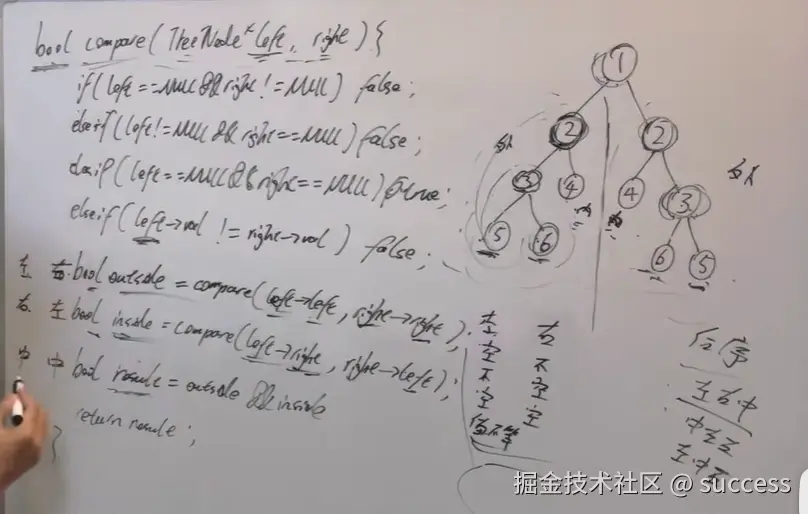 bool compare(TreeNode* left, right){
if(left==NULL && right!=NULL) false;
elseif(left!=NULL && right==NULL) false;
elseif(left==NULL && right==NULL) true;
elseif(left->val != right->val) false;
左 右 bool outside = compare(left->left, right->right);
右 左 bool inside = compare(left->right, right->left);
中 中 bool result = outside && inside
return result;
}
1
2 2
3 4 4 3
5 6 6 5
左 右
空 不
不 空
空
值不等
后序
左右中
中左右
左中右
掘金技术社区 @ success